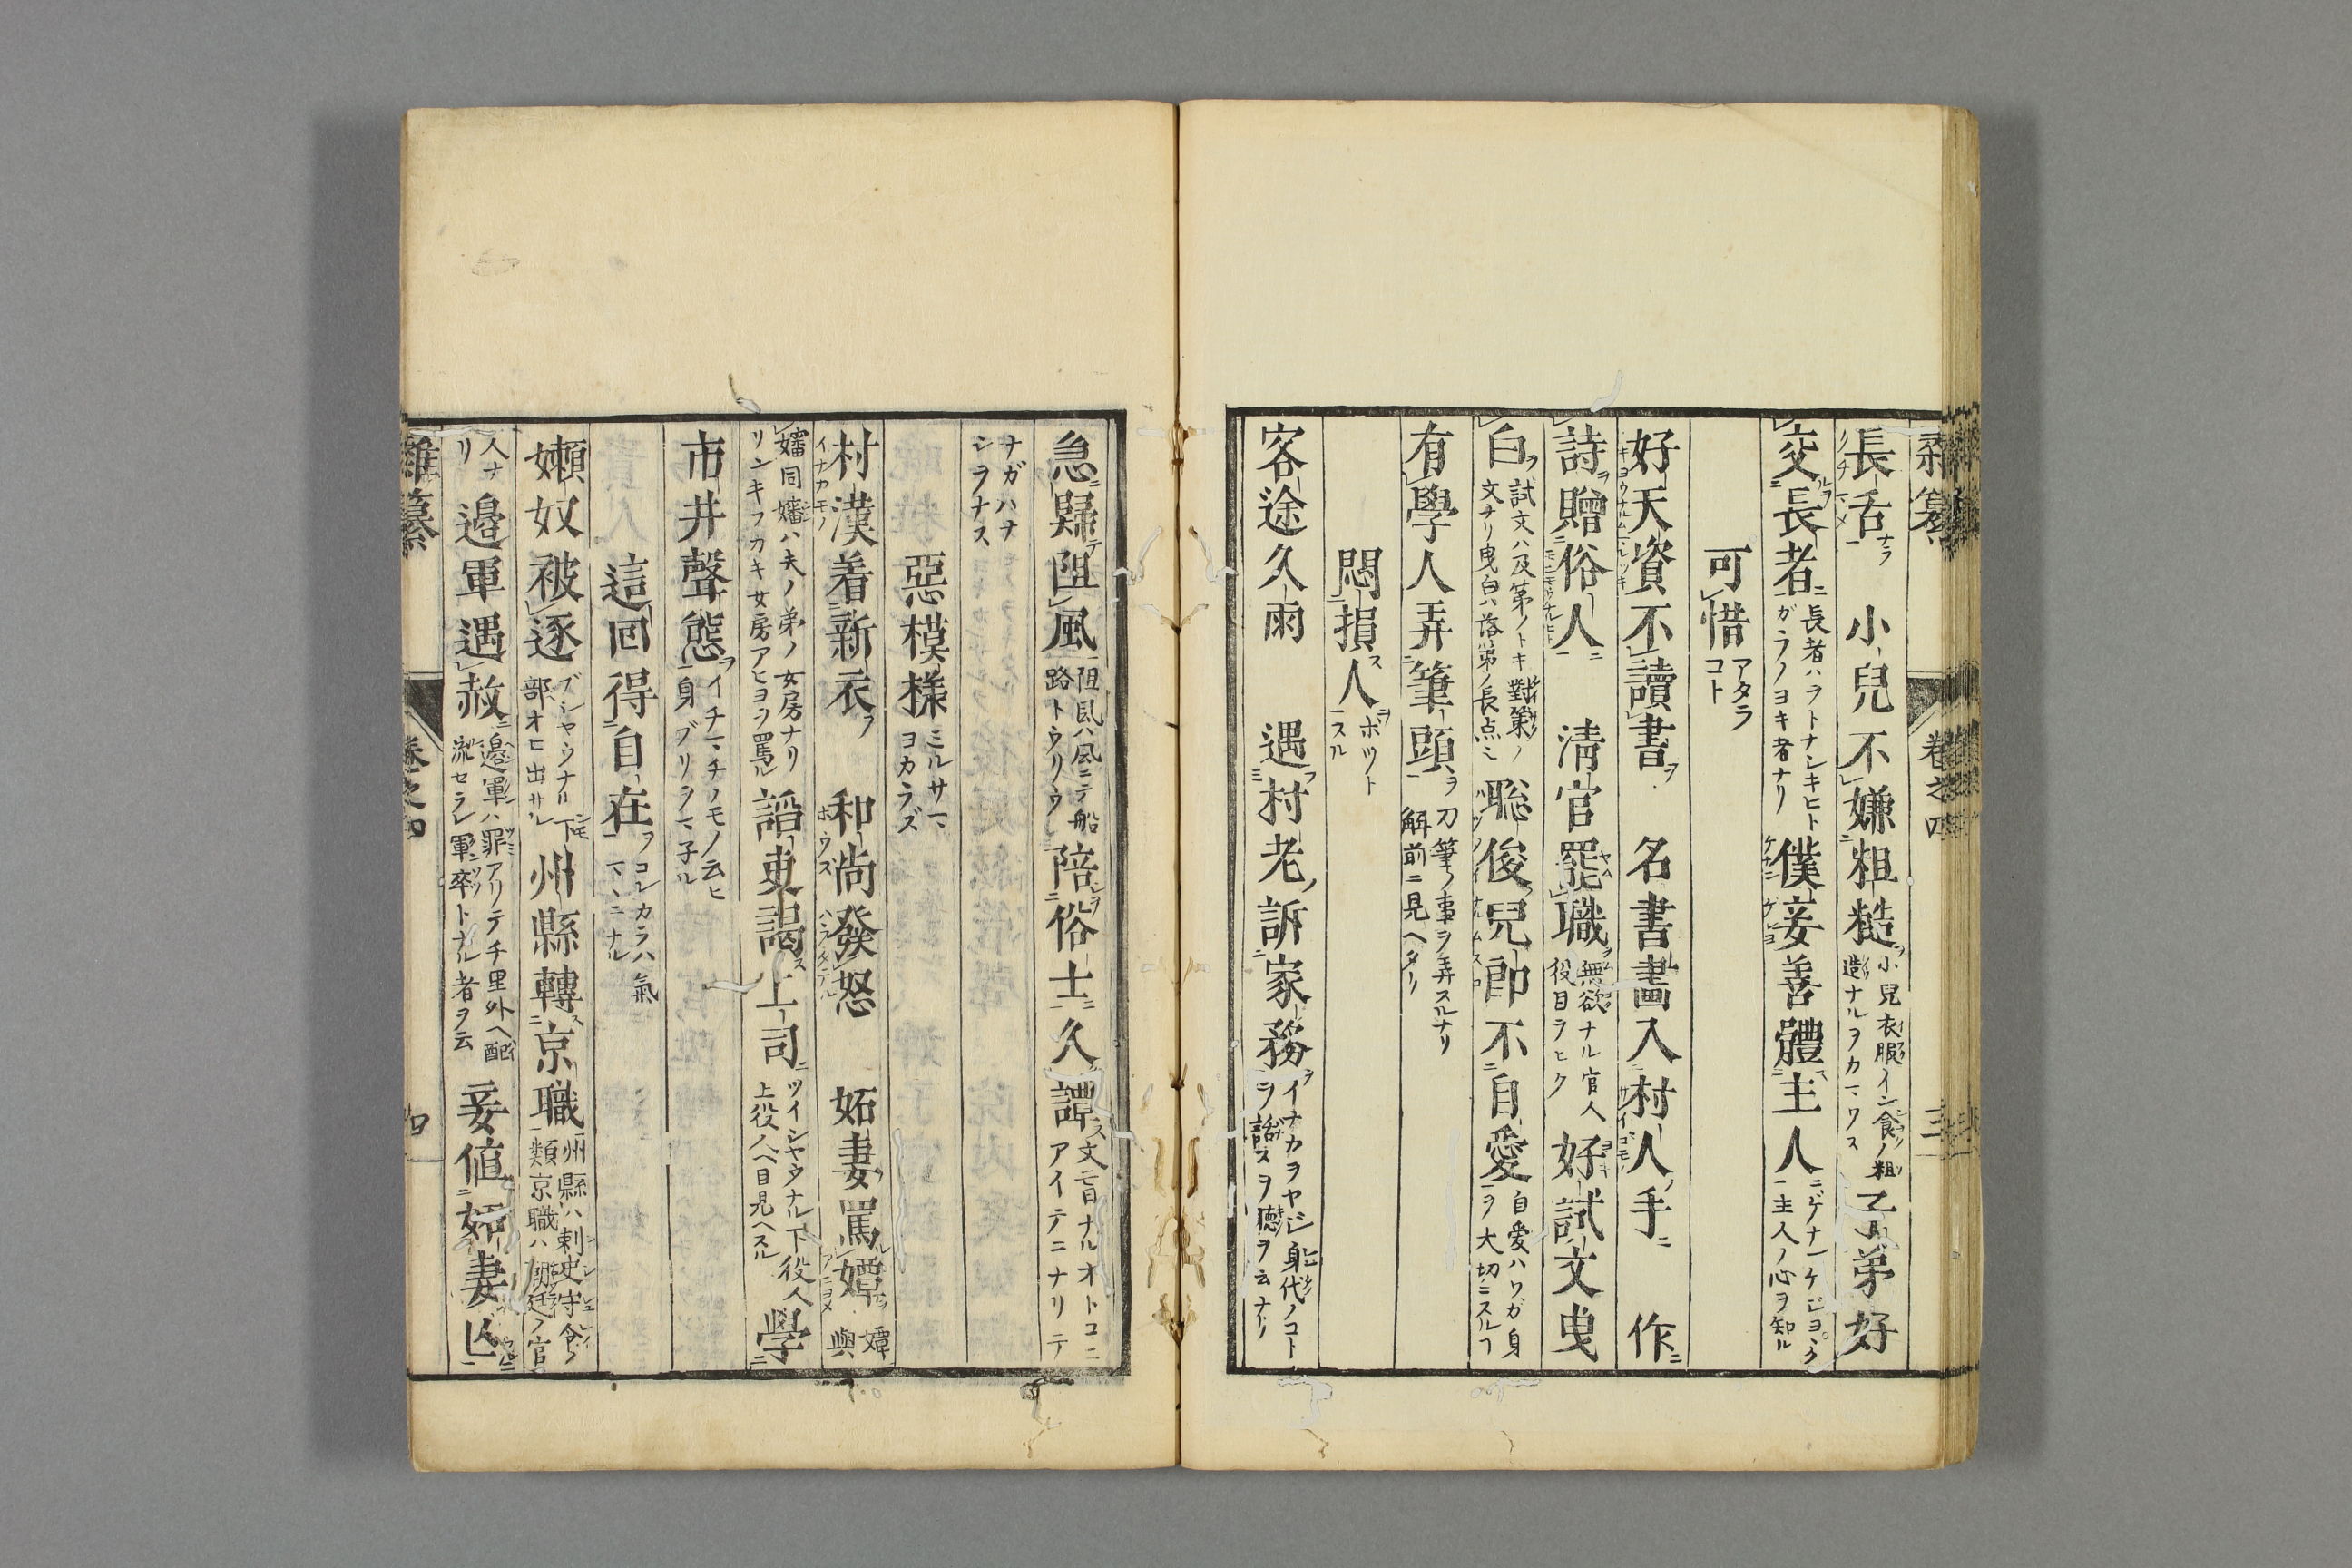 雜纂 卷之四 三
長舌 小兒不嫌粗糙 小兒衣服イン食ノ粗造ナルヲカマワス 子弟好
交長者 長者ハヲトナシキヒトガラノヨキ者ナリ 僕妾善體主人 主人ノ心ヲ知ル
可惜 アタラコト
好天資不讀書 名書畫入村人手 作
詩贈俗人 清官罷職 無欲ナル官人役目ヲヒク 好試文曳
白 試文ハ及第ノトキ對策ノ文ナリ曳白ハ落第ノ長点ミ 聡俊兒郎不自愛 自愛ハワガ身ヲ大切ニスルフ
有學人弄筆頭 刀筆ノ事ヲ弄スルナリ解前ニ見ヘタリ
悶損人 ホツトスル
客途久雨 遇村老訴家務 イナカヲヤジ身代ノコトヲ話スヲ聴ヲ云ナリ
急歸阻風 阻風ハ風ニテ船路トウリウ 陪俗士久譚 文盲ナルオトコニアイテニナリテ
ナガハナシラナス
惡模樣 ミルサマヨカラズ
村漢着新衣 和尚發怒 妬妻罵嬸 嬸與
嬸同嬸ハ夫ノ弟ノ女房ナリリンキフカキ女房アヒヨメヲ罵ル 諂吏謁上司 ツイシヤウナル下役人上役人ヘ目見ヘスル 學
市井聲態 イチマチノモノ云ヒ身ブリヲマネル
這回得自在 コレカラハ氣マヽニナル
嬾奴被逐 ブシヤウナル下部オヒ出サル 州縣轉京職 州縣ハ刺史守令ノ類京職ハ朝廷ノ官
人ナリ 邉軍遇赦 邉軍ハ罪アリテ千里外ヘ配流セラレ軍卒トナル者ヲ云 妾値妬妻亾
雜纂 卷之四 四